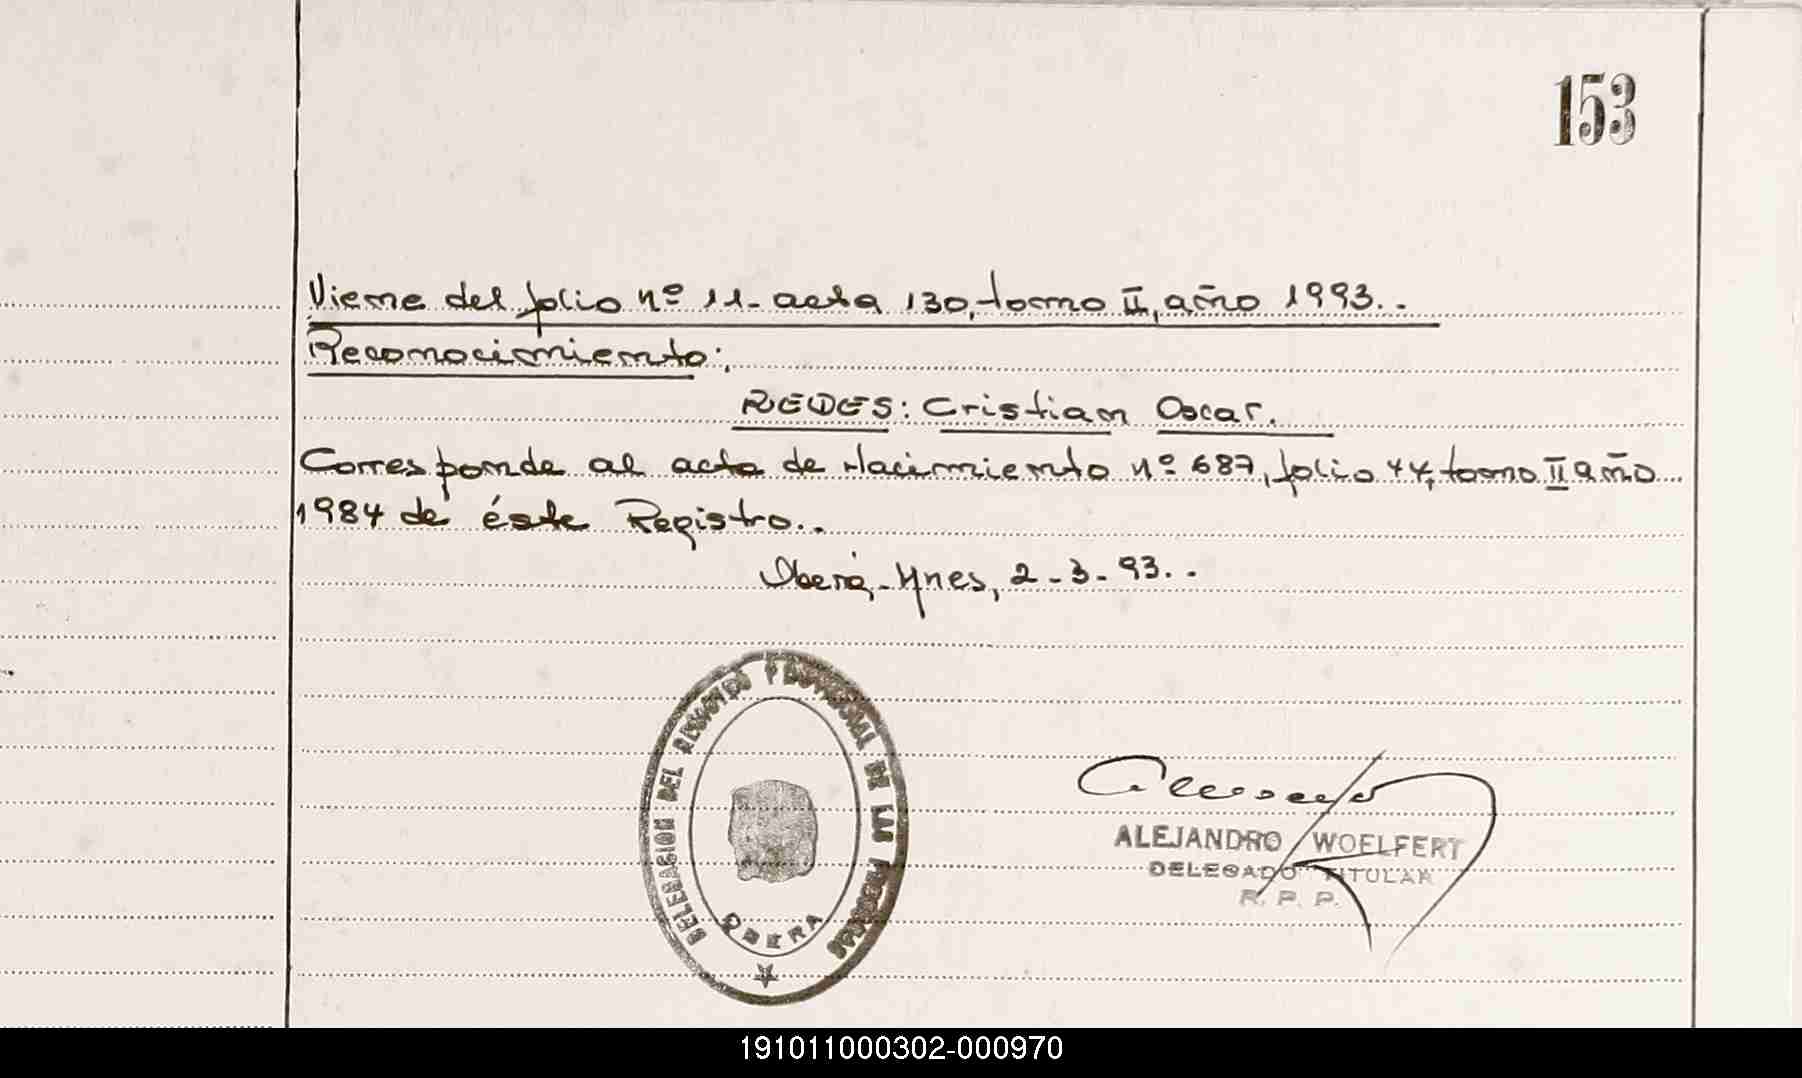 153
Viene del folio nº 11- acta 130, tomo II, año 1993..
Reconocimiento:
REDES: Cristian Oscar.
Corresponde al acta de Nacimiento nº 687, folio 44, tomo II año
1984 de éste Registro..
Oberá, Mnes, 2-3-93..
DELEGACION DEL REGISTRO PROVINCIAL DE LAS PERSONAS
OBERA
ALEJANDRO WOELFERT
DELEGADO TITULAR
R. P. P.
191011000302-000970